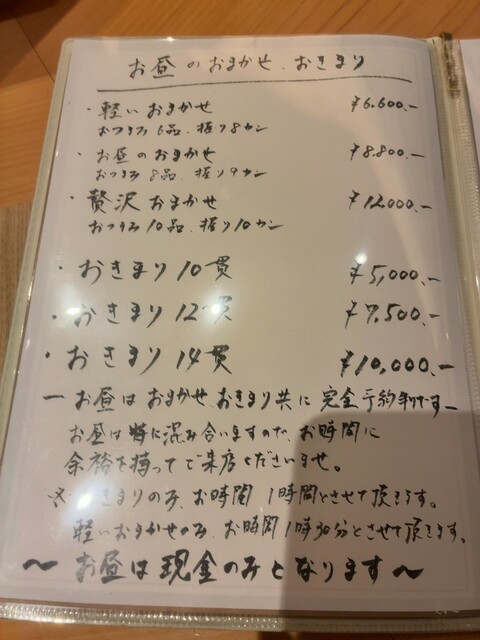 お昼のおまかせ.おきまり
・軽いおまかせ ¥6.600.-
おつまみ6品.握り8カン
・お昼のおまかせ ¥8.800.-
おつまみ8品.握り9カン
・贅沢おまかせ ¥12000.-
おつまみ10品.握り10カン
・おきまり10貫 ¥5,000.-
・おきまり12貫 ¥7.500.-
・おきまり14貫 ¥10,000.-
ーお昼はおまかせ.おきまり共に完全予約制ですー
お昼は特に混み合いますので、お時間に
余裕を持ってご来店くださいませ。
※おきまりのみ、お時間1時間とさせて頂きます。
軽いおまかせのみ、お時間1時30分とさせて頂きます。
〜お昼は現金のみとなります〜